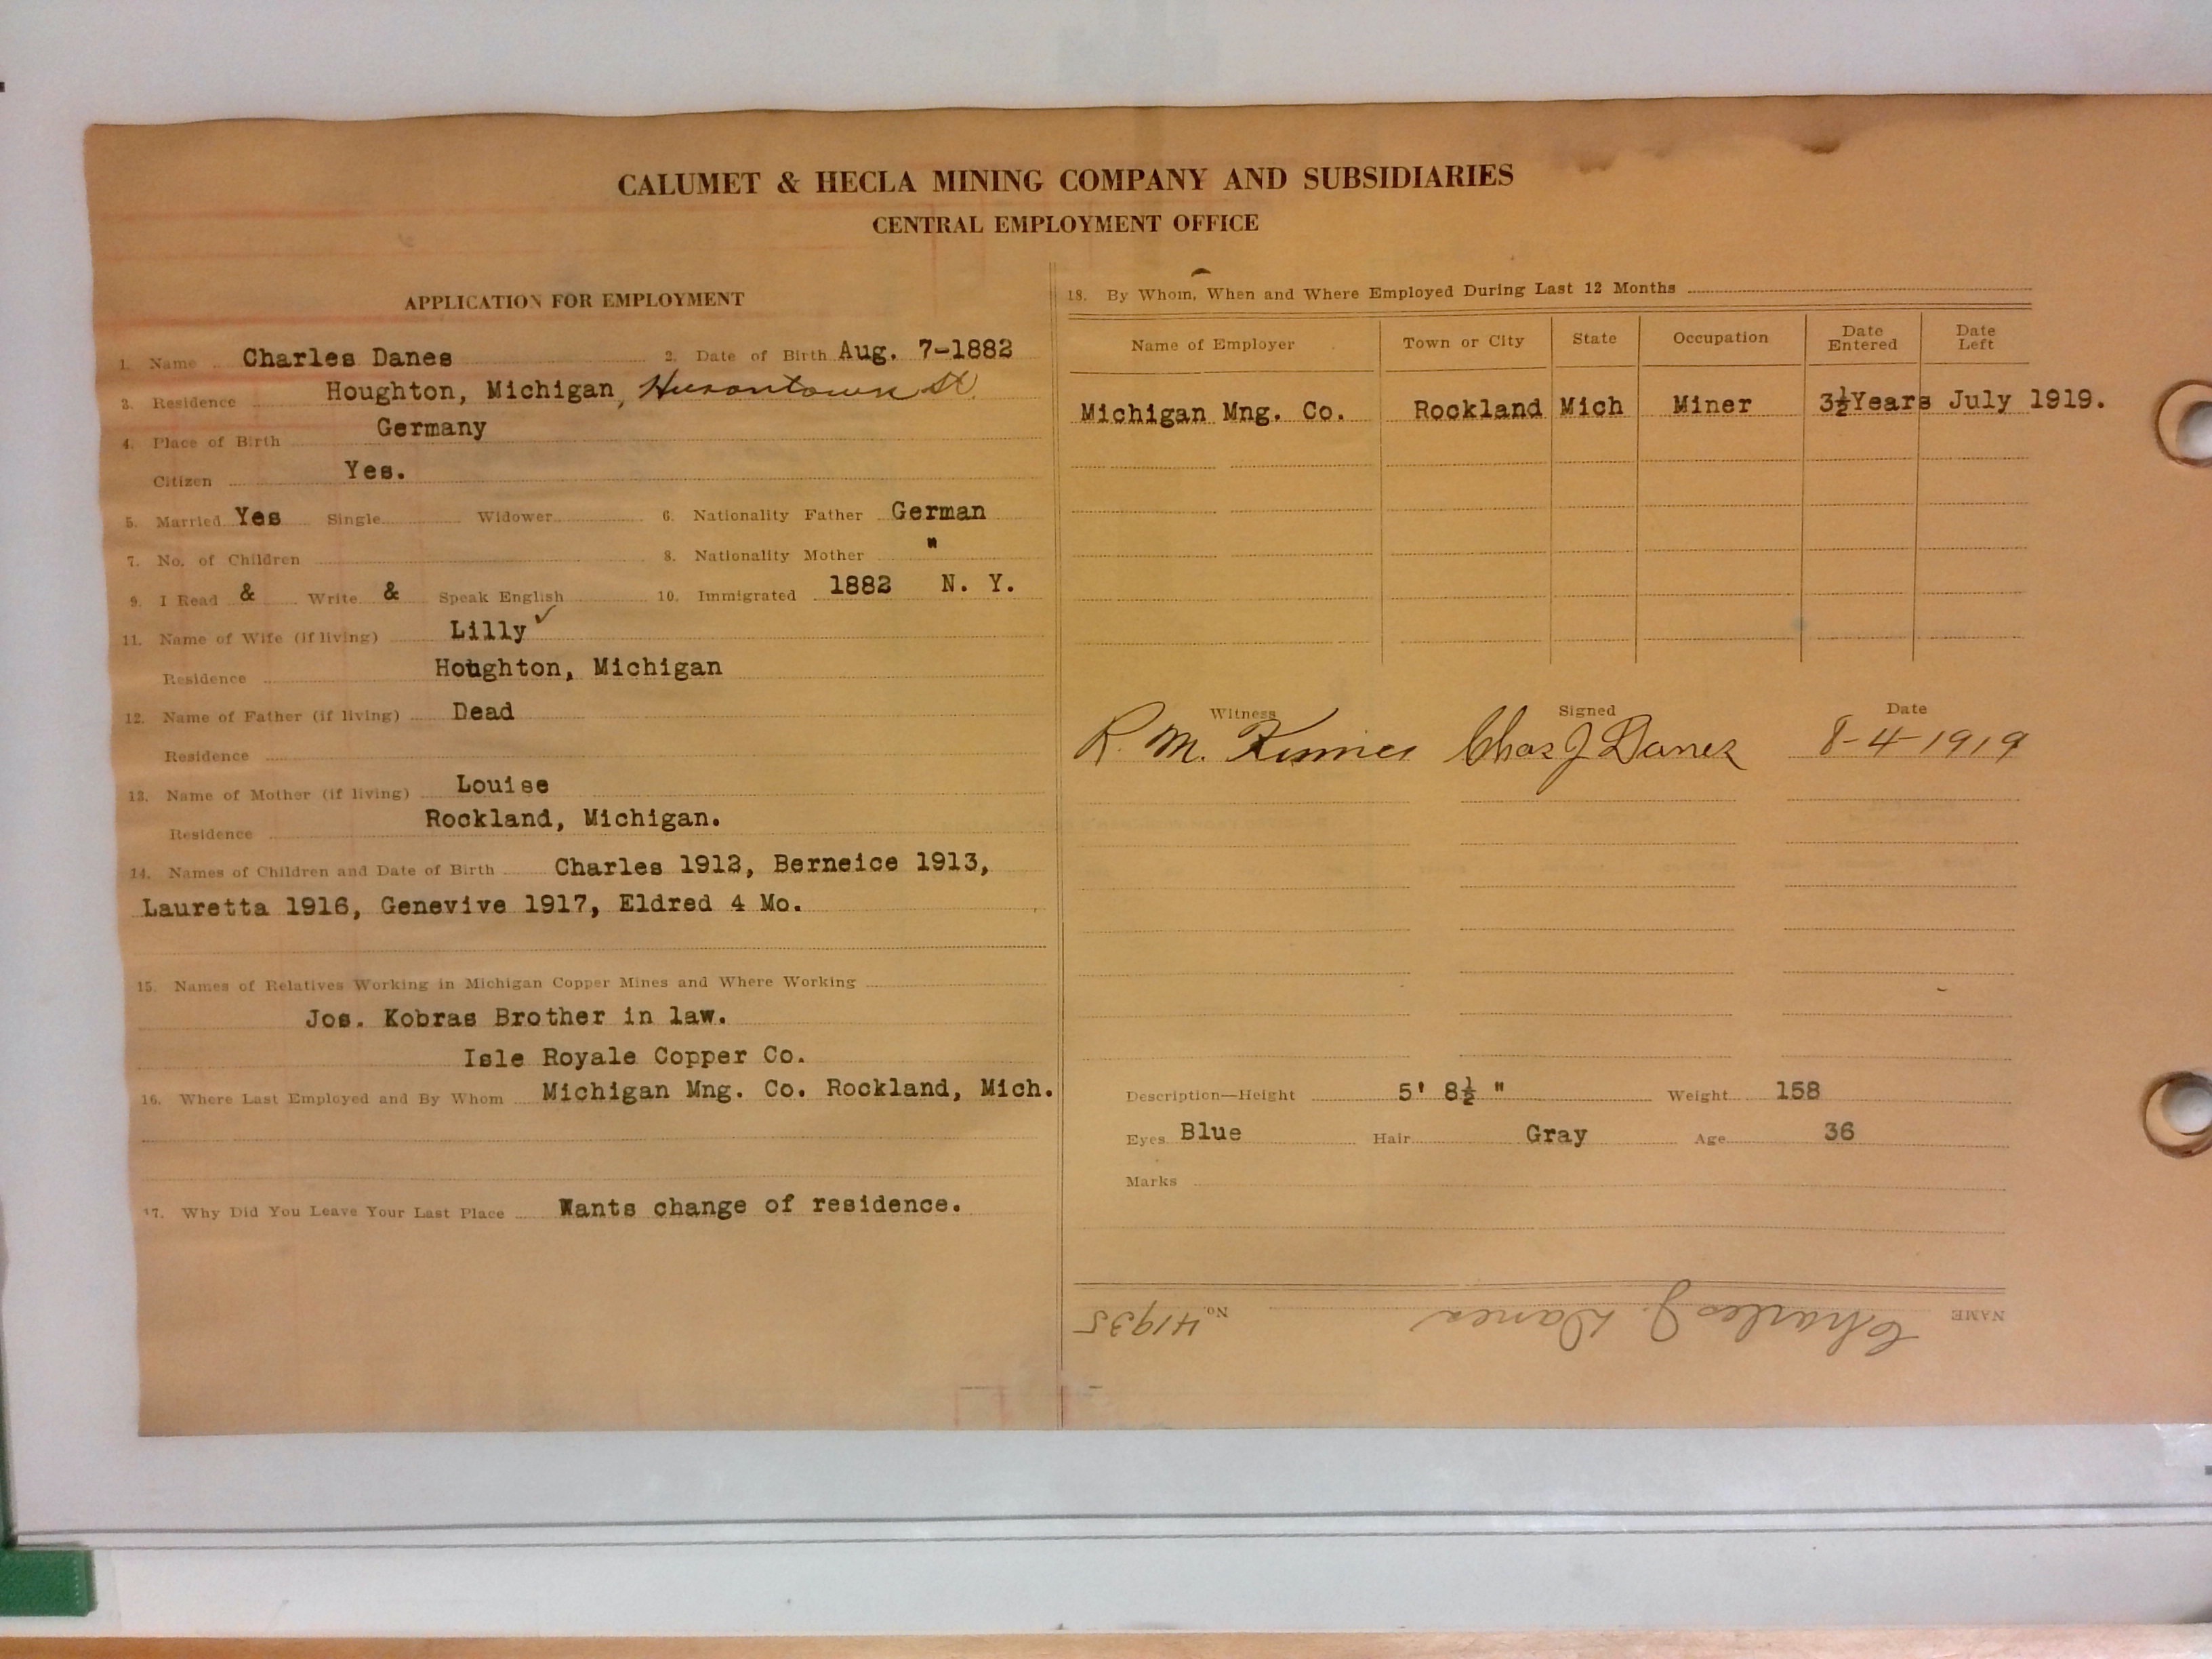 CALUMET & HECLA MINING COMPANY AND SUBSIDIARIES
CENTRAL EMPLOYMENT OFFICE
APPLICATION FOR EMPLOYMENT
1. Name Charles Danes 2. Date of Birth Aug. 7-1882
3. Residence Houghton, Michigan, Hurontown St.
4. Place of Birth Germany
Citizen Yes.
5. Married Yes Single Widower 6. Nationality Father German
7. No. of Children 8. Nationality Mother "
9. I Read & Write & Speak English 10. Immigrated 1882 N. Y.
11. Name of Wife (if living) Lilly ✓
Residence Houghton, Michigan
12. Name of Father (if living) Dead
Residence
13. Name of Mother (if living) Louise
Residence Rockland, Michigan.
14. Names of Children and Date of Birth Charles 1912, Berneice 1913,
Lauretta 1916, Genevive 1917, Eldred 4 Mo.
15. Names of Relatives Working in Michigan Copper Mines and Where Working
Jos. Kobras Brother in law.
Isle Royale Copper Co.
16. Where Last Employed and By Whom Michigan Mng. Co. Rockland, Mich.
17. Why Did You Leave Your Last Place Wants change of residence.
18. By Whom, When and Where Employed During Last 12 Months
Name of Employer Town or City State Occupation Date Entered Date Left
Michigan Mng. Co. Rockland Mich Miner 3½Years July 1919.
Witness Signed Date
R. M. Chas J Danes 8-4-1919
Description—Height 5' 8½ " Weight 158
Eyes Blue Hair Gray Age 36
Marks
NAME Charles J. Danes No. 41935